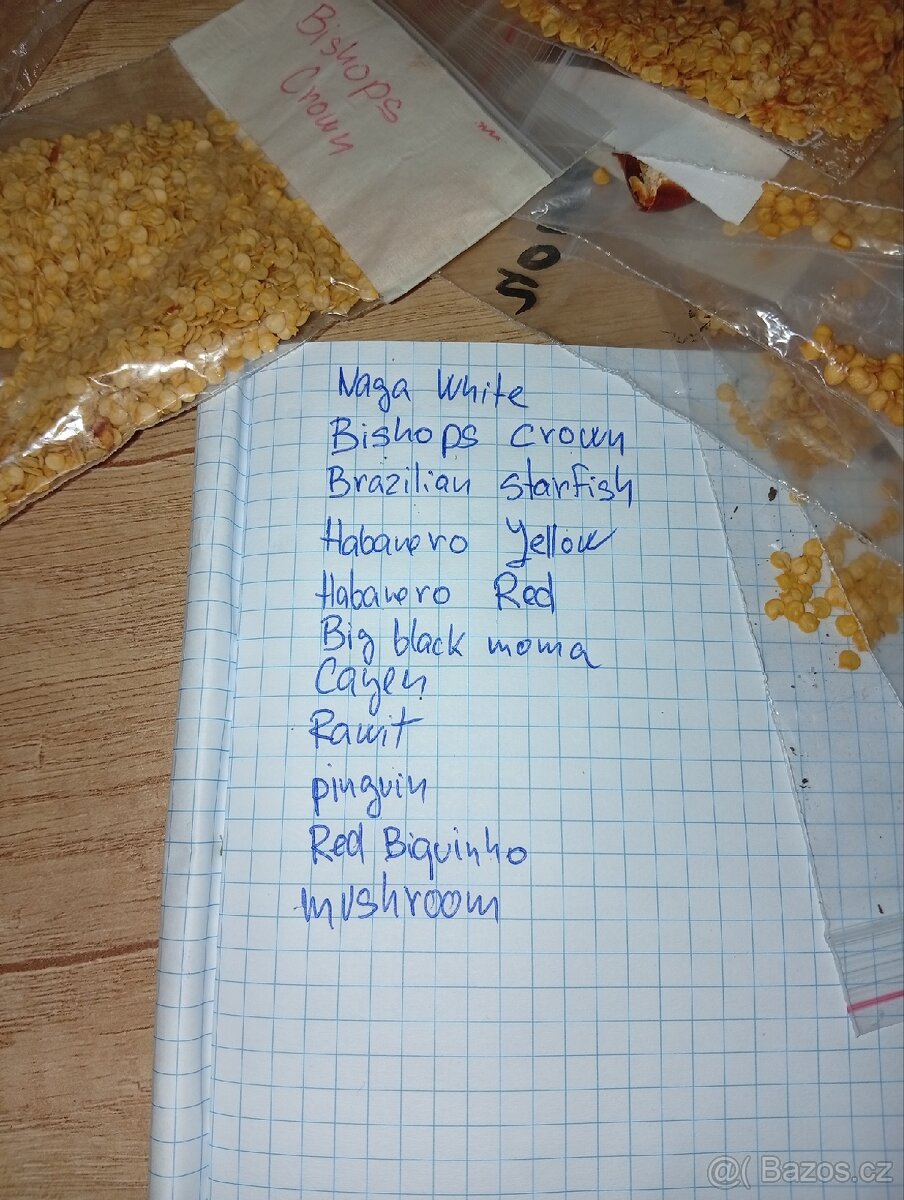 Bishops
Crown
Naga White
Bishops crown
Brazilian starfish
Habanero Yellow
Habanero Red
Big black moma
Cayen
Rawit
pinguin
Red Biquinho
mushroom
@( Bazos.cz